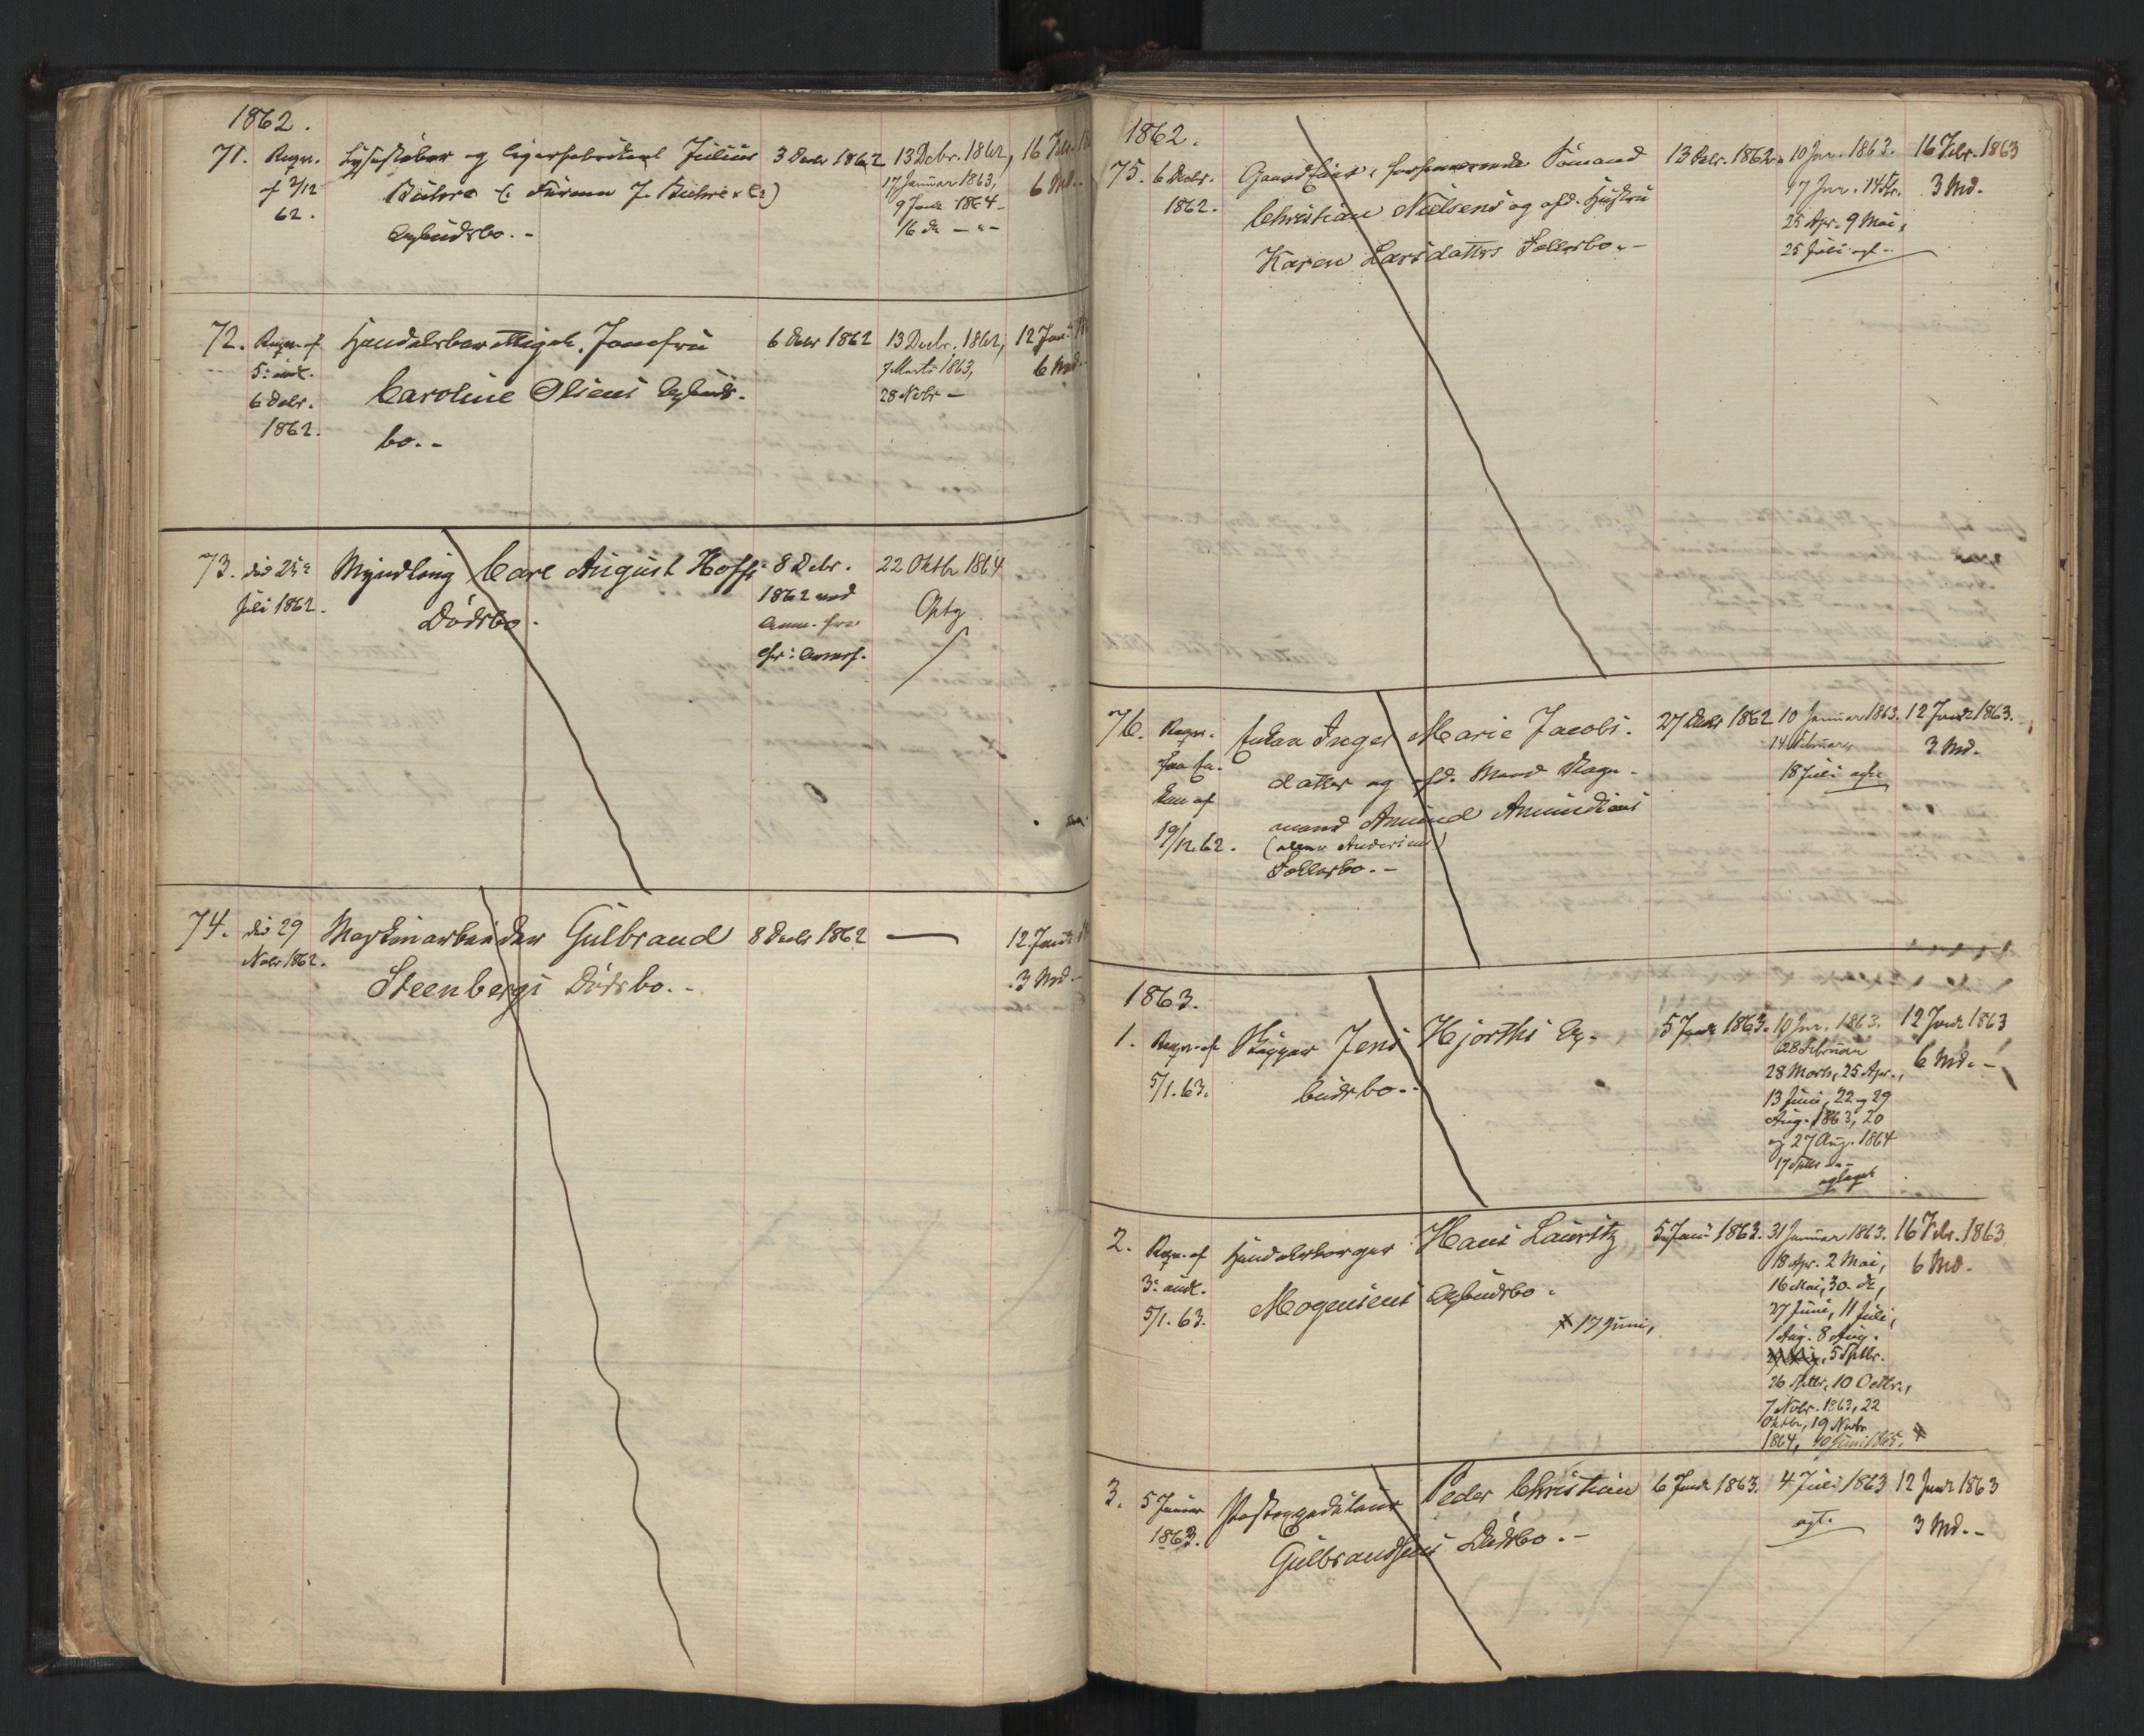 1862.
71. Reqn. Lysestøber og Cigarfabrikant Julius 3 Decbr 1862 13 Decbr. 1862, 16 Febr.
af 2/12 Buhre (: Firma J. Buhre & Co:) 17 Januar 1863, 6 Md.
62. Opbudsbo. - 9 Janr 1864 -
16 do - " -
72. Reqn. af Handelsberettiget, Jomfru 6 Decbr 1862 13 Decbr. 1862, 12 Janr
5. indk. Caroline Olsens Opbuds- 7 Marts 1863, 6 Md. -
6 Decbr. bo. - 28 Novbr -
1862.
73. død 25de Myndling Carl August Hoffs 8 Decbr. 22 Oktbr 1864
Juli 1862. Dødsbo. 1862 med Optg
Anm. fra
74. død 29 Maskinarbeider Gulbrand 8 Decbr 1862 — 12 Janr
Novbr 1862. Steenbergs Dødsbo. - 3 Md. -
1862.
75. 6 Decbr. Gaardeier, forhenværende Sømand 13 Decbr. 1862. 10 Jnr. 1863. 16 Febr. 1863
1862. Christian Nielsens og afd. Hustru 17 Jnr. 14 Fbr. 3 Md.
Karen Larsdatters Fællesbo. - 25 Apr. 9 Mai,
25 Juli
76. Reqn. Enken Inger Marie Jacobs- 27 Decbr 1862 10 Januar 1863. 12 Janr 1863.
fra En- datter og afd. Mand 14 Februar 3 Md.
ken af mand Amund Amundsens 18 Juli
19/12.62. (Andersens)
Fællesbo. -
1863.
1. Reqn. af Skipper Jens Hjorths Op- 5 Janr 1863. 10 Jnr. 1863. 12 Janr 1863
5/1.63. budsbo. - 28 Februar 6 Md. -
28 Marts, 25 Apr.,
13 Juni, 22 og 29
Aug. 1863, 20
og 27 Aug. 1864
17 Septbr
2. Reqn. af Handelsborger Hans Lauritz 5 Janr 1863. 31 Januar 1863. 16 Febr. 1863
3. indk. Mogensens Opbudsbo. 18 Apr. 2 Mai, 6 Md.
5/1.63. 16 Mai, 30. do,
27 Juni, 11 Juli,
1 Aug. 8 Aug.
5 Septbr.
26 Septbr., 10 Octbr.,
7 Novbr. 1863, 22
Oktbr, 19 Novbr
1864, 10 Juni 1865.
17 Juni,
3. 5 Januar Postexpeditør Peder Christian 6 Janr 1863. 4 Juli 1863 12 Janr 1863
1863. Gulbrandsens Dødsbo. - 3 Md. -